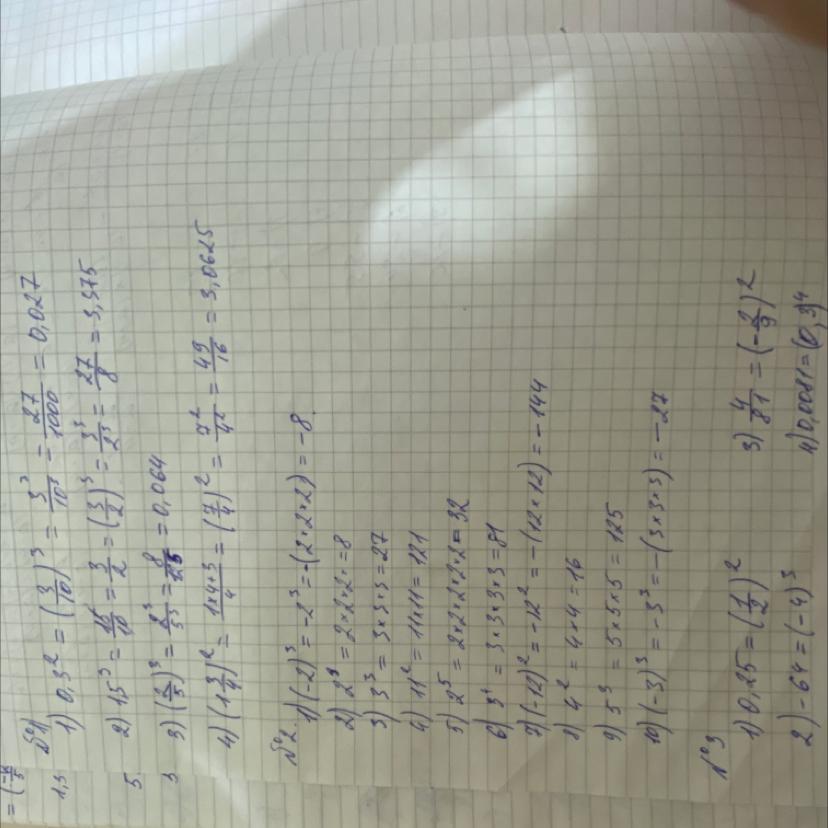 = (-8/5
№1
1) 0,3² = (3/10)³ = 3³/10³ = 27/1000 = 0,027
2) 15³ = 15/10 = 3/2 = (3/2)³ = 3³/2³ = 27/8 = 3,375
3) (2/5)³ = 2³/5³ = 8/125 = 0,064
4) (1 3/4)² = 1×4+3/4 = (7/4)² = 7²/4² = 49/16 = 3,0625
1,3
5.
3
№2.
1) (-2)³ = -2³ = -(2×2×2) = -8.
2) 2³ = 2×2×2 = 8
3) 3³ = 3×3×3 = 27
4) 11² = 11×11 = 121
5) 2⁵ = 2×2×2×2×2 = 32
6) 3⁴ = 3×3×3×3 = 81
7) (-12)² = -12² = -(12×12) = -144
8) 4² = 4×4 = 16
9) 5³ = 5×5×5 = 125
10) (-3)³ = -3³ = -(3×3×3) = -27
№3
1) 0,25 = (1/2)²
2) -64 = (-4)³
3) 4/81 = (-2/9)²
4) 0,0081 = (0,3)⁴